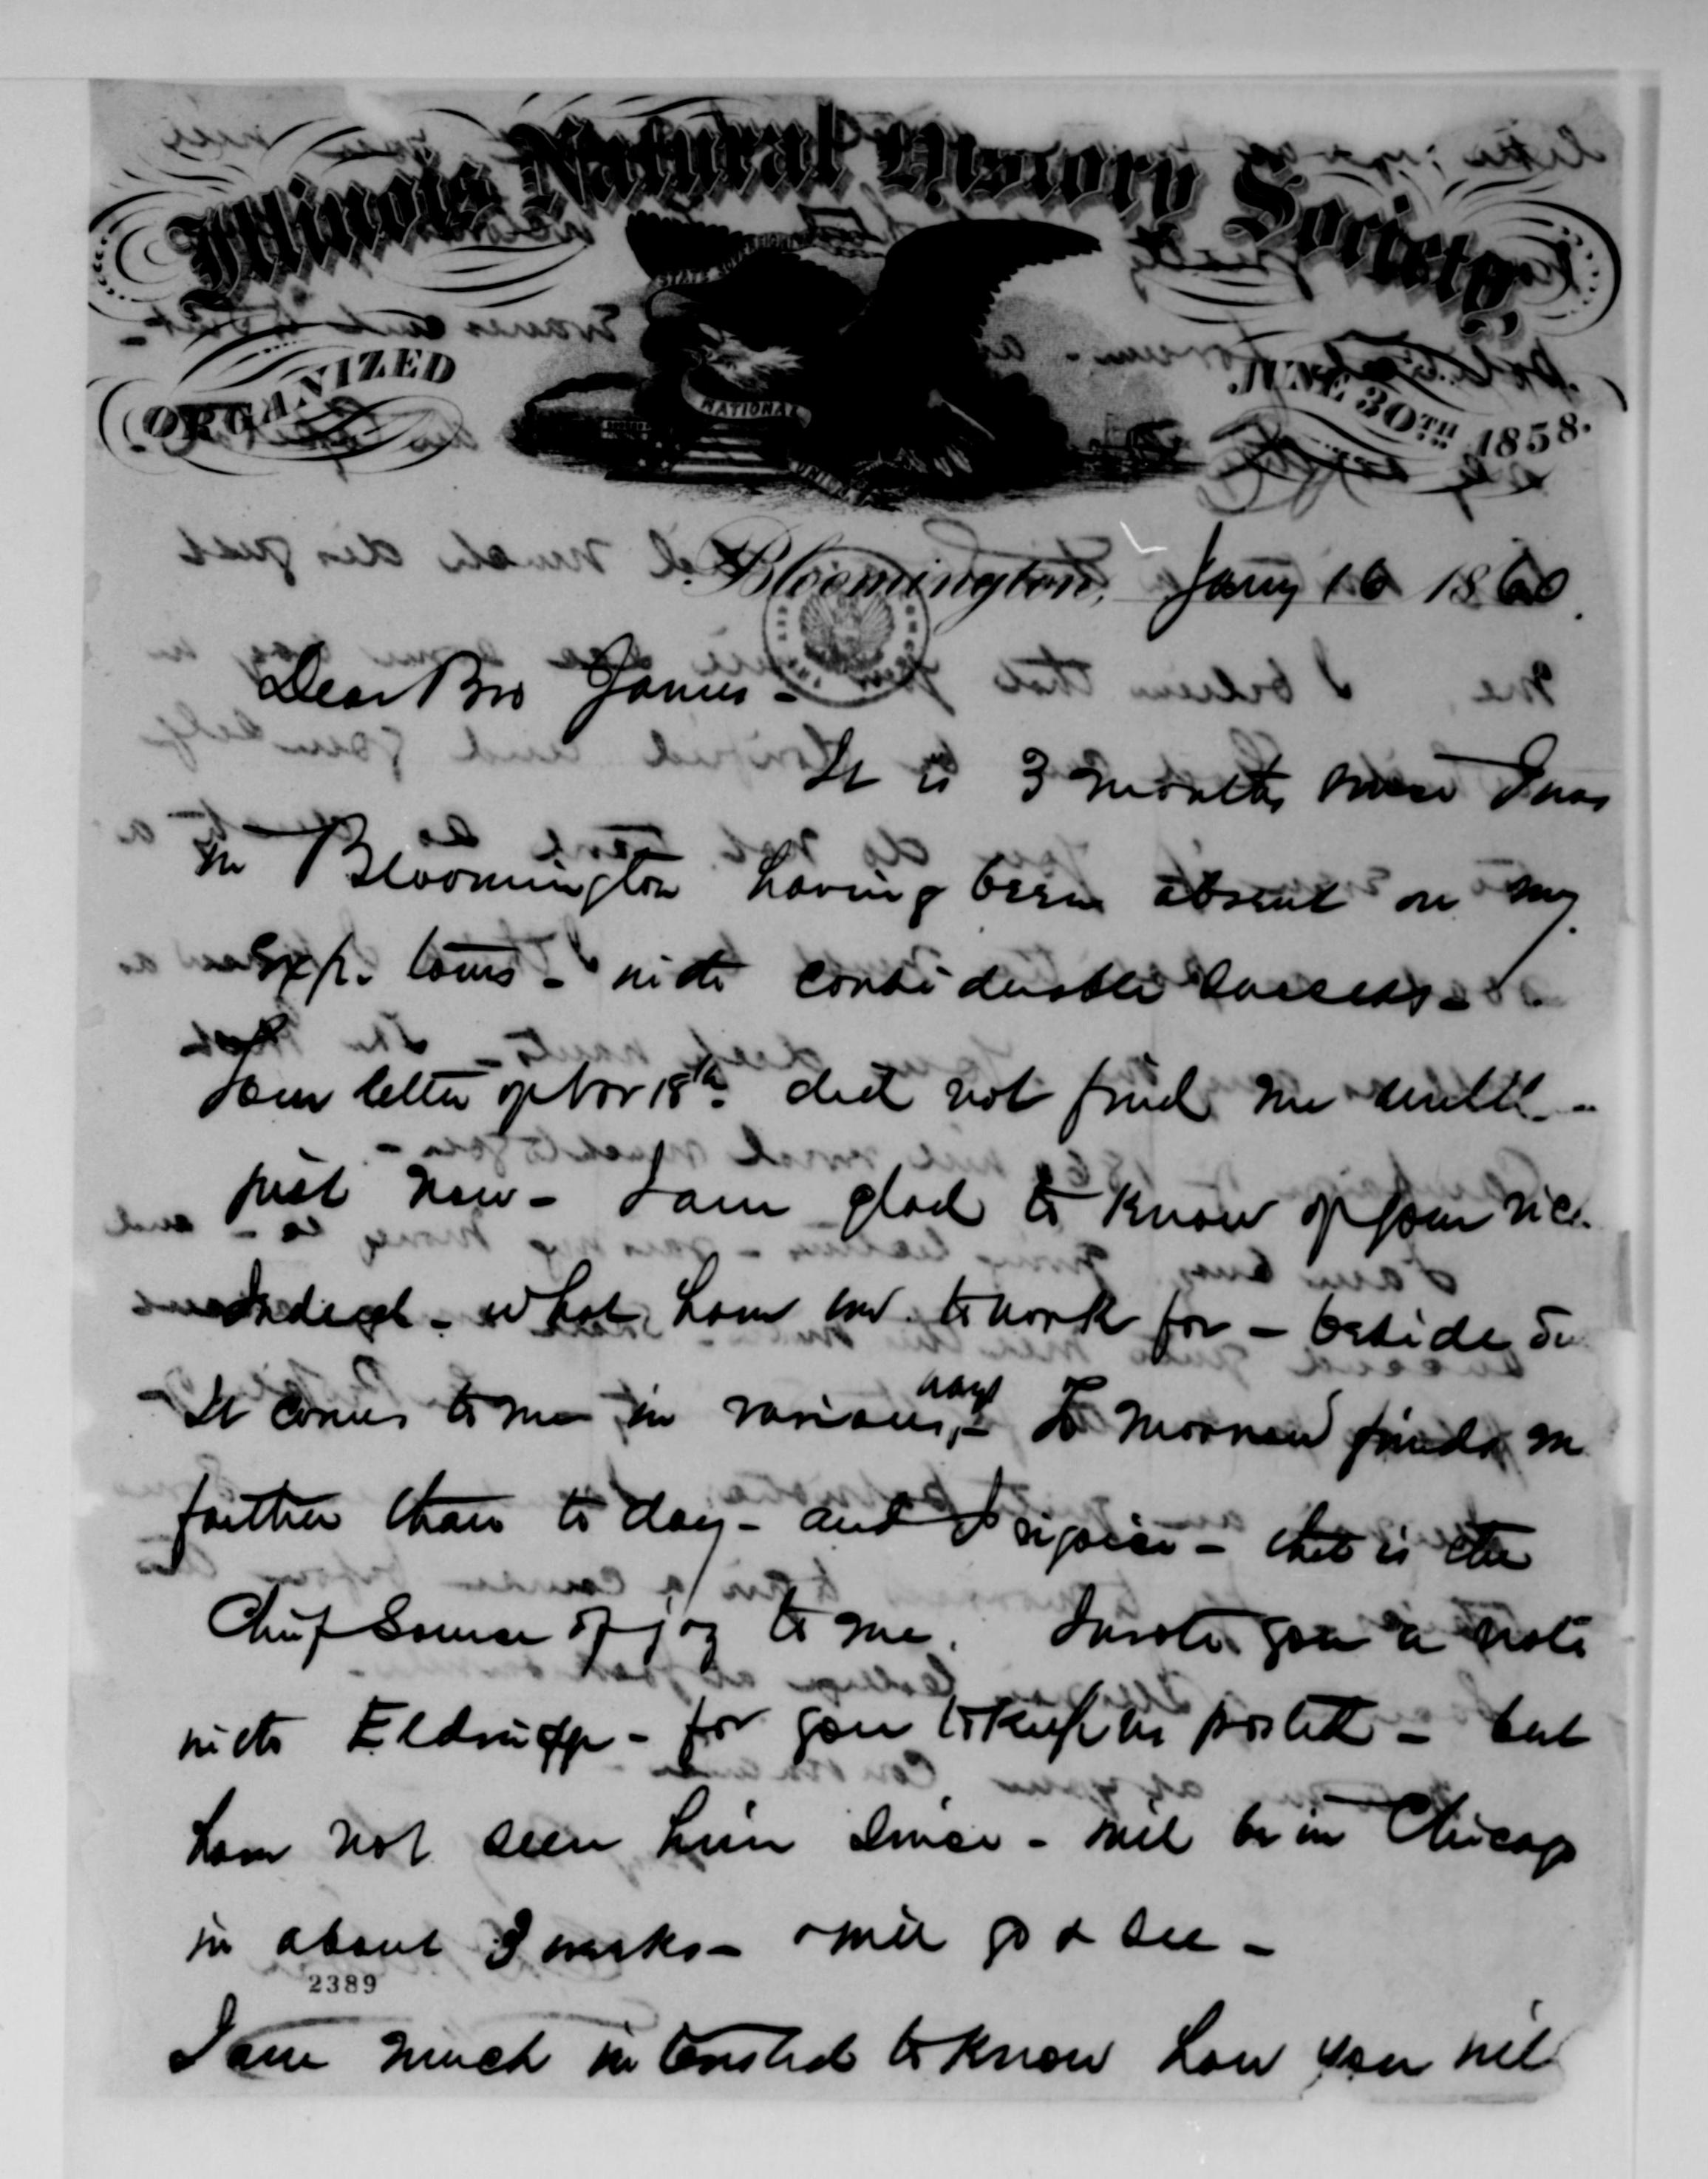 Illinois Natural History Society,
STATE SOVEREIGNTY
NATIONAL
UNION
ORGANIZED
JUNE 30TH 1858.
Bloomington, Jany 16 1860.
Dear Bro James -
It is 3 months since I was
in Bloomington having been absent on my
Exp. tours - with considerable success -
Your letter of Nov 18th did not find me until -
just now - I am glad to know of your success
Indeed - what have we to work for - beside
It comes to me in various, ways - To morrow finds me
further than to day - and I rejoice - that is the
Chief Source of joy to me. I wrote you a note
with Eldridge - for you to keep me posted - but
have not seen him since - will be in Chicago
in about 3 weeks - & will go & see -
2389
I am much interested to know how you will